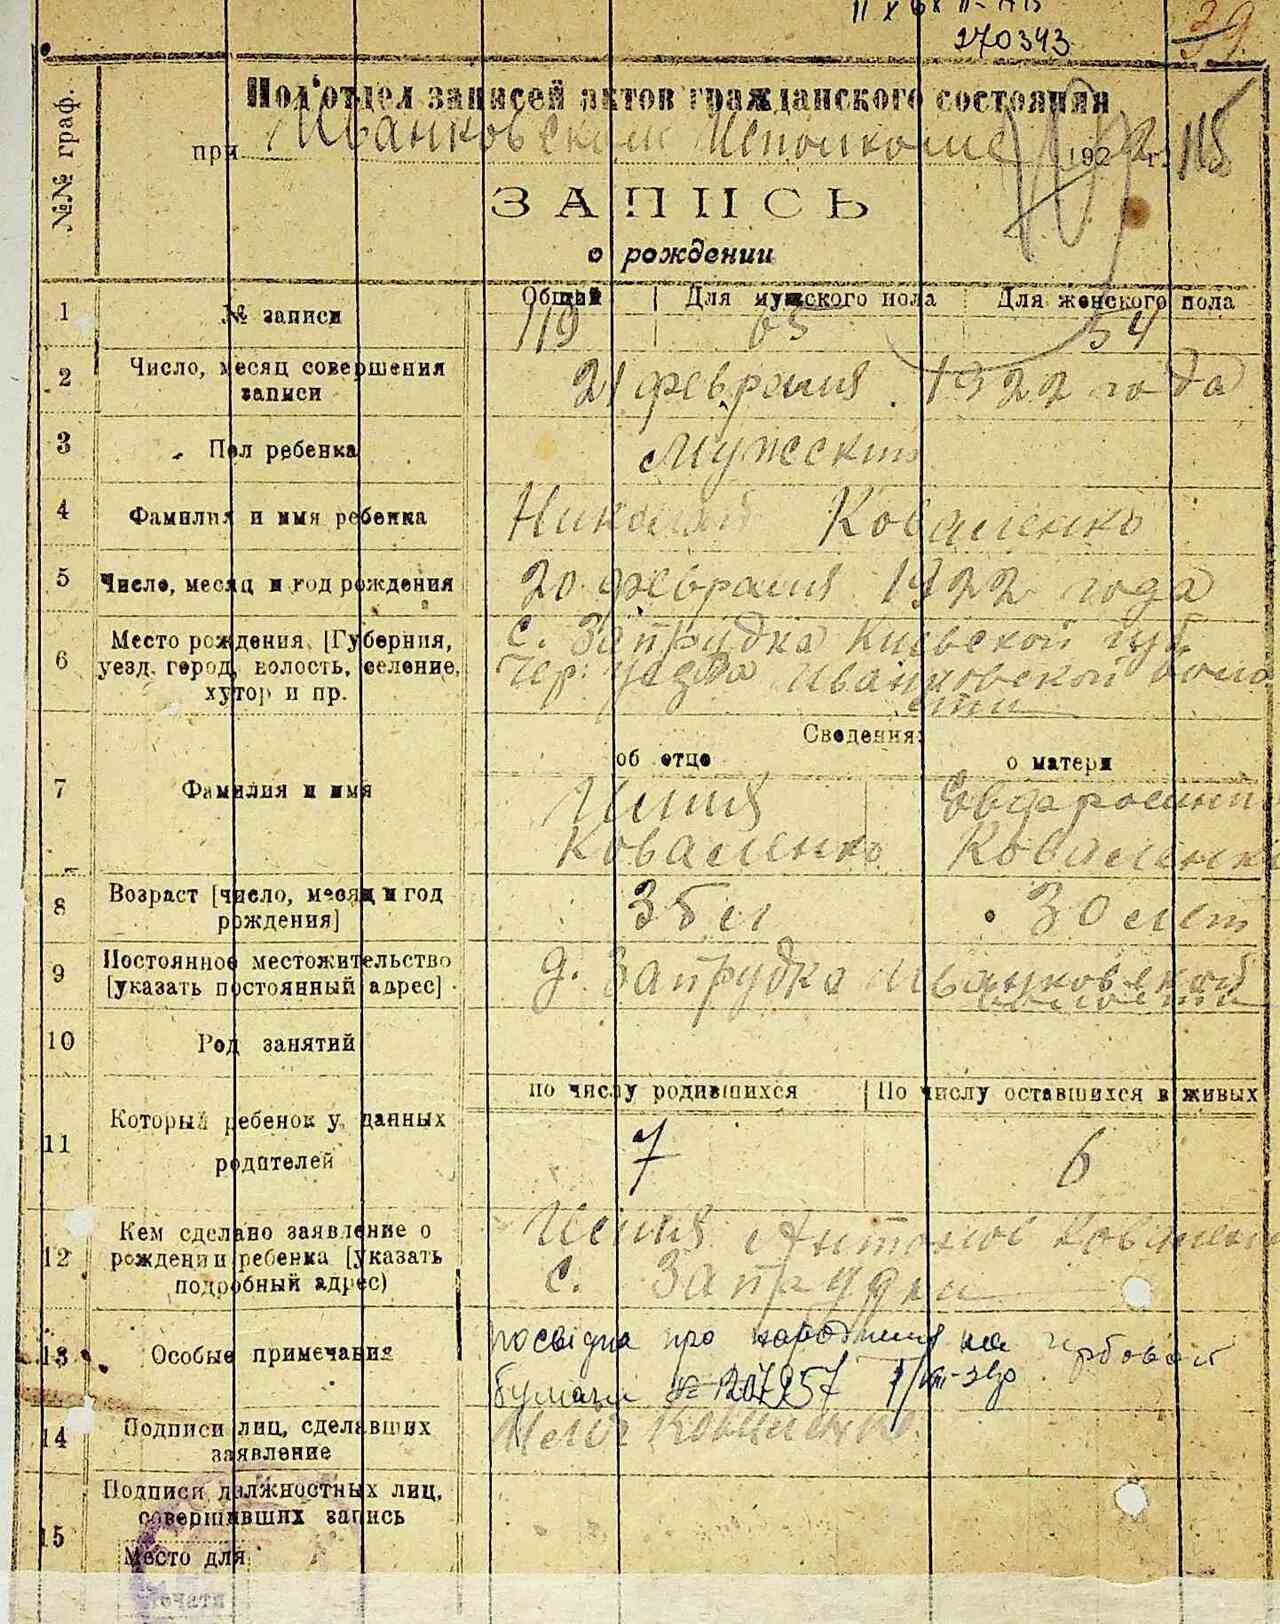 270343
39
№№ граф.
Под'отдел записей актов гражданского состояния
при Иванковском Исполкоме 1922 г. 115
ЗАПИСЬ
о рождении
1 № записи Общий Для мужского пола Для женского пола
119 65 54
2 Число, месяц совершения записи 21 февраля 1922 года
3 Пол ребенка Мужеский
4 Фамилия и имя ребенка Николай Коваленко
5 Число, месяц и год рождения 20 февраля 1922 года
6 Место рождения [Губерния, уезд, город, волость, селение, хутор и пр. с. Запрудка Киевской губ.
Чер. уезда Иванковской воло
сти
Сведения:
об отце о матери
7 Фамилия и имя Илия Евфросиния
Коваленко Коваленко
8 Возраст [число, месяц и год рождения] 36 л 30 лет
9 Постоянное местожительство [указать постоянный адрес] д. Запрудка Иванковской
волости
10 Род занятий
11 Который ребенок у данных родителей по числу родившихся По числу оставшихся в живых
7 6
12 Кем сделано заявление о рождении ребенка [указать подробный адрес) Илия Антонов Коваленко
с. Запрудки
13 Особые примечания посвідка про народження на гербовой
бумаги № 207957
14 Подписи лиц, сделавших заявление Коваленко
15 Подписи должностных лиц, совершивших запись
Место для